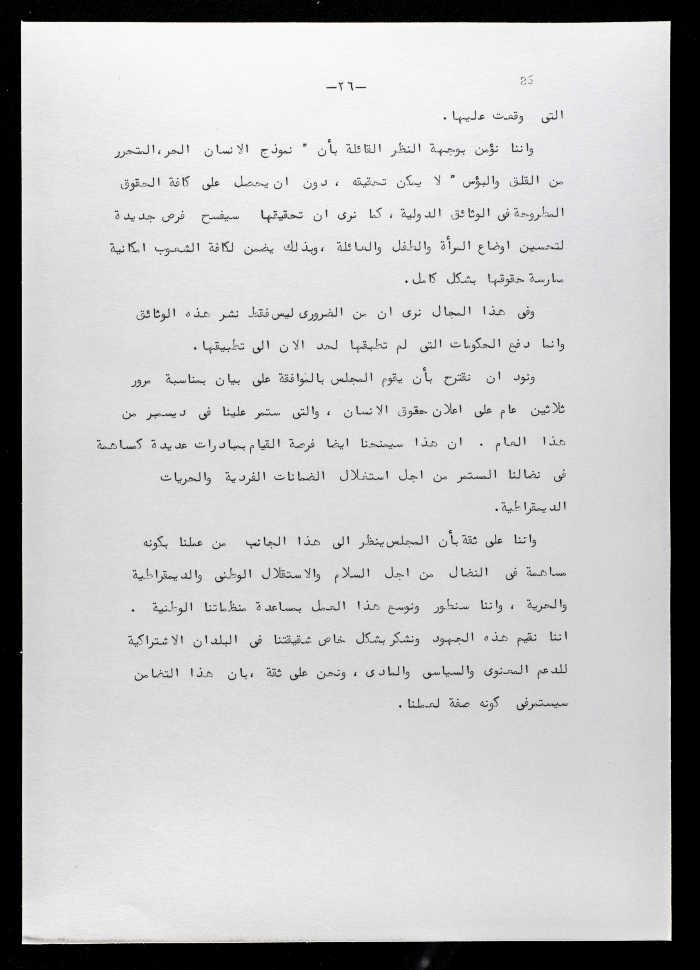 25
—٢٦—
التى وقعت عليها.
واننا نؤمن بوجهة النظر القائلة بأن " نموذج الانسان الحر،المتحرر
من القلق والبؤس " لا يمكن تحقيقه ، دون ان يحصل على كافة الحقوق
المطروحة فى الوثائق الدولية ، كما نرى ان تحقيقها سيفسح فرص جديدة
لتحسين اوضاع المرأة والطفل والعائلة ،وبذلك يضمن لكافة الشعوب امكانية
ممارسة حقوقها بشكل كامل.
وفى هذا المجال نرى ان من الضرورى ليس فقط نشر هذه الوثائق
وانما دفع الحكومات التى لم تطبقها لحد الان الى تطبيقها.
ونود ان نقترح بأن يقوم المجلس بالموافقة على بيان بمناسبة مرور
ثلاثين عام على اعلان حقوق الانسان ، والتى ستمر علينا فى ديسمبر من
هذا العام . ان هذا سيمنحنا ايضا فرصة القيام بمبادرات عديدة كمساهمة
فى نضالنا المستمر من اجل استغلال الضمانات الفردية والحريات
الديمقراطية.
واننا على ثقة بأن المجلس ينظر الى هذا الجانب من عملنا بكونه
مساهمة فى النضال من اجل السلام والاستقلال الوطنى والديمقراطية
والحرية ، واننا سنطور ونوسع هذا العمل بمساعدة منظماتنا الوطنية .
اننا نقيم هذه الجهود ونشكر بشكل خاص شقيقتنا فى البلدان الاشتراكية
للدعم المعنوى والسياسى والمادى ، ونحن على ثقة ،بان هذا التضامن
سيستمرفى كونه صفة لعملنا.